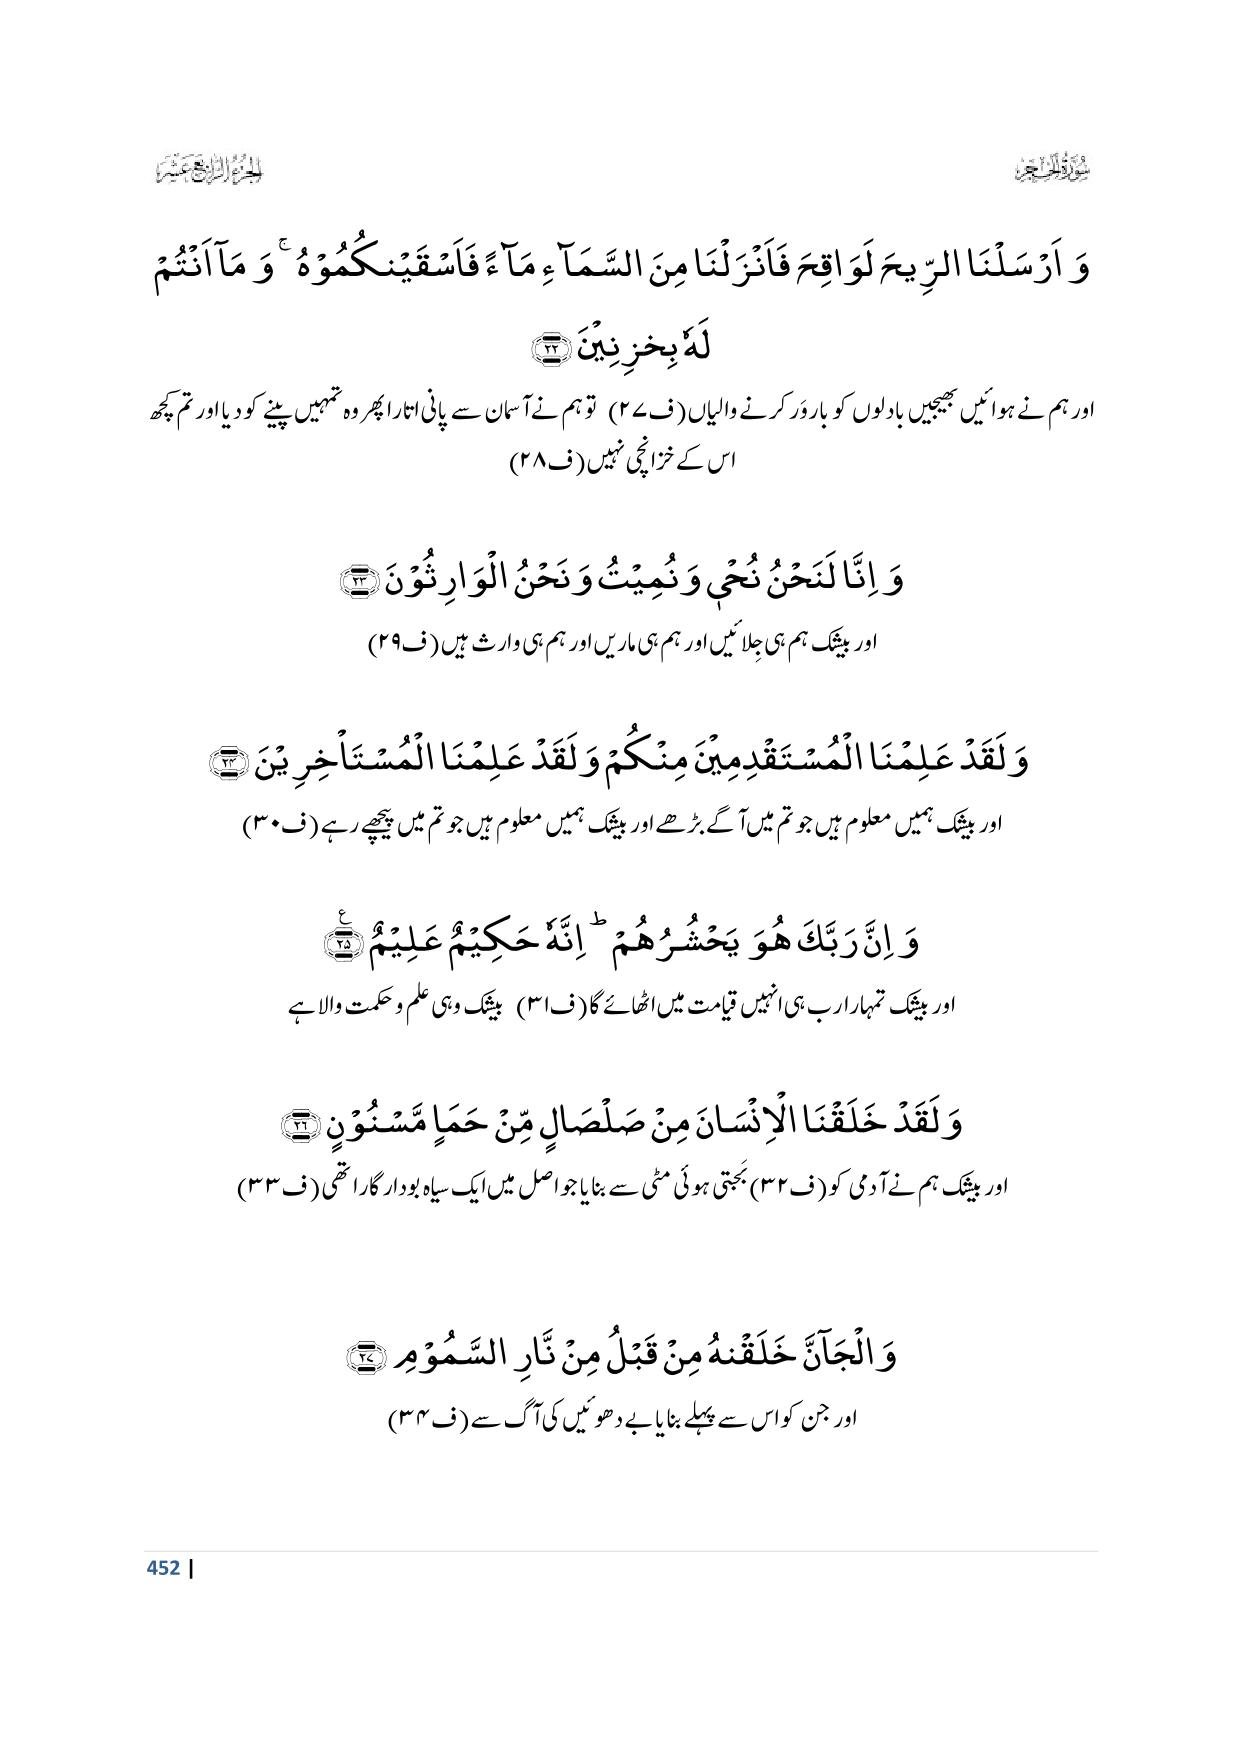 سُوْرَةُ الْحِجْر
الجزء الرابع عشر
وَ اَرْسَلْنَا الرِّیحَ لَوَاقِحَ فَاَنْزَلْنَا مِنَ السَّمَآءِ مَآءً فَاَسْقَیْنکُمُوْهُ ۚ وَ مَاۤ اَنْتُمْ
لَهٗ بِخزِنِیْنَ ﴿۲۲﴾
اور ہم نے ہوائیں بھیجیں بادلوں کو باروَر کرنے والیاں (ف۲۷) تو ہم نے آسمان سے پانی اتارا پھر وہ تمہیں پینے کو دیا اور تم کچھ
اس کے خزانچی نہیں (ف۲۸)
وَ اِنَّا لَنَحْنُ نُحْیٖ وَ نُمِیْتُ وَ نَحْنُ الْوَارِثُوْنَ ﴿۲۳﴾
اور بیشک ہم ہی جِلائیں اور ہم ہی ماریں اور ہم ہی وارث ہیں (ف۲۹)
وَ لَقَدْ عَلِمْنَا الْمُسْتَقْدِمِیْنَ مِنْکُمْ وَ لَقَدْ عَلِمْنَا الْمُسْتَاْخِرِیْنَ ﴿۲۴﴾
اور بیشک ہمیں معلوم ہیں جو تم میں آگے بڑھے اور بیشک ہمیں معلوم ہیں جو تم میں پیچھے رہے (ف۳۰)
وَ اِنَّ رَبَّکَ هُوَ یَحْشُرُهُمْ ؕ اِنَّهٗ حَکِیْمٌ عَلِیْمٌ ﴿۲۵﴾ ع
اور بیشک تمہارا رب ہی انہیں قیامت میں اٹھائے گا (ف۳۱) بیشک وہی علم و حکمت والا ہے
وَ لَقَدْ خَلَقْنَا الْاِنْسَانَ مِنْ صَلْصَالٍ مِّنْ حَمَاٍ مَّسْنُوْنٍ ﴿۲۶﴾
اور بیشک ہم نے آدمی کو (ف۳۲) بَجتی ہوئی مٹی سے بنایا جو اصل میں ایک سیاہ بودار گارا تھی (ف۳۳)
وَ الْجَآنَّ خَلَقْنهُ مِنْ قَبْلُ مِنْ نَّارِ السَّمُوْمِ ﴿۲۷﴾
اور جن کو اس سے پہلے بنایا بے دھوئیں کی آگ سے (ف۳۴)
452 |